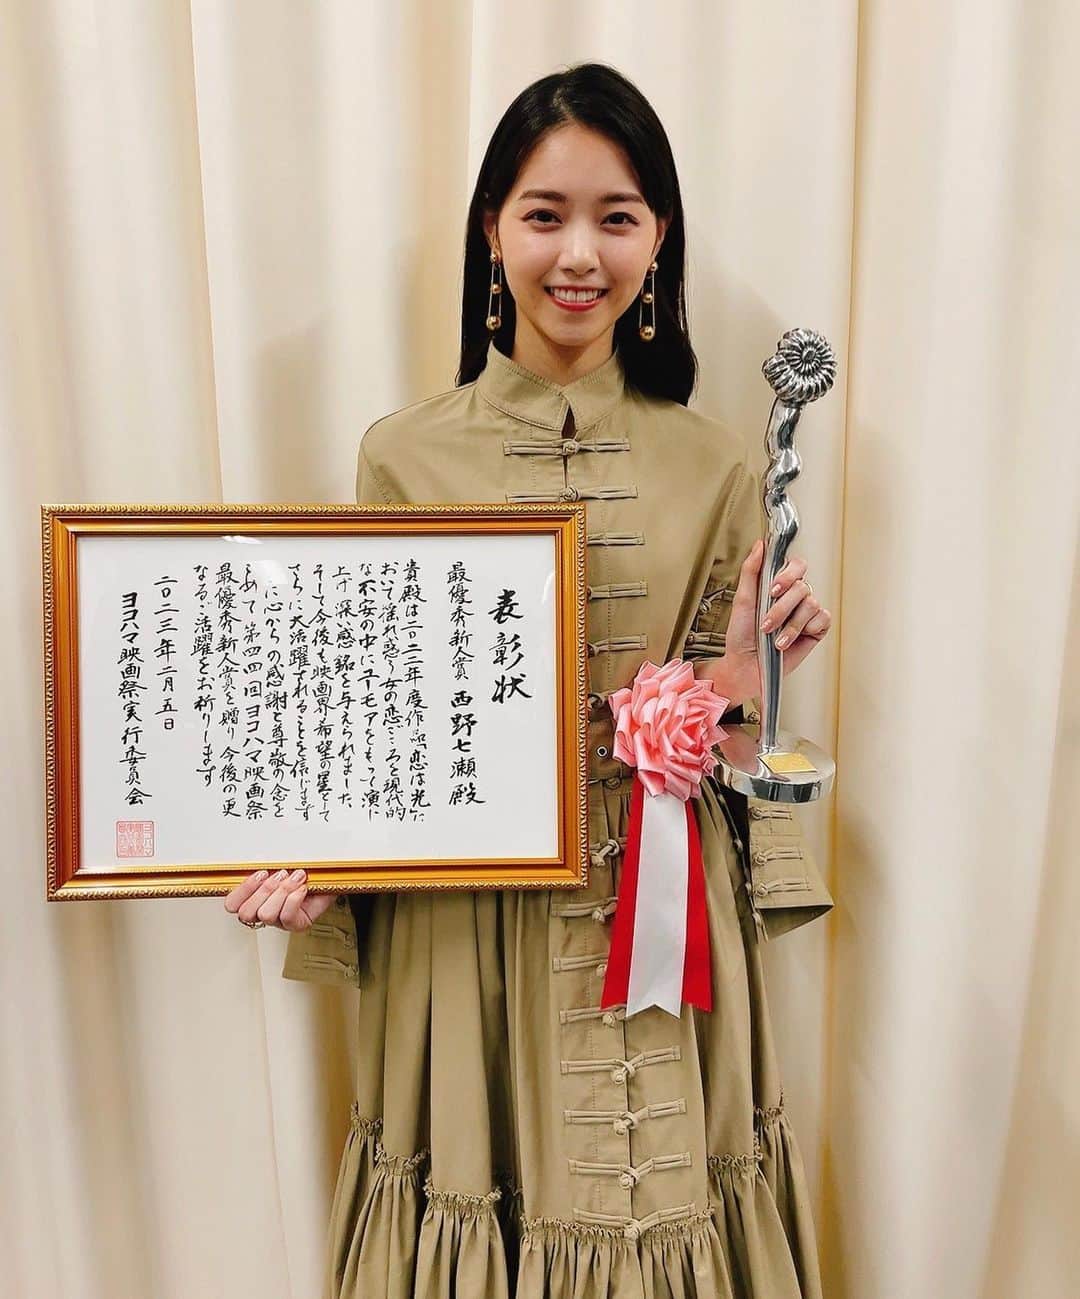 表彰状
最優秀新人賞 西野七瀬殿
貴殿は二〇二二年度作品「恋は光」に
おいて揺れ惑う女の恋ごころを現代的
な不安の中にユーモアをもって演じ
上げ深い感銘を与えられました
そして今後も映画界の希望の星として
さらに大活躍されることを信じます
ここに心からの感謝と尊敬の念を
こめて第四四回ヨコハマ映画祭
最優秀新人賞を贈り今後の更
なるご活躍をお祈りします
二〇二三年二月五日
ヨコハマ映画祭実行委員会